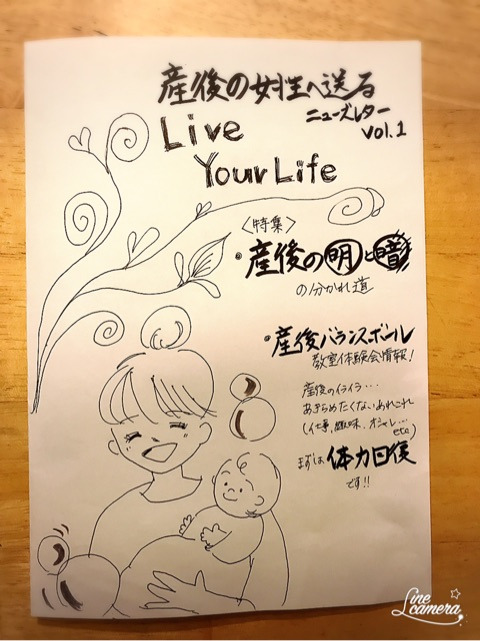 産後の女性へ送る
ニューズレター
vol.1
Live
Your Life
〈特集〉
・産後の明と暗
の分かれ道
・産後バランスボール
教室体験会情報!
産後のイライラ…
あきらめたくないあれこれ
(仕事、趣味、オシャレ…
etc)
まずは体力回復
です!!
Line
camera